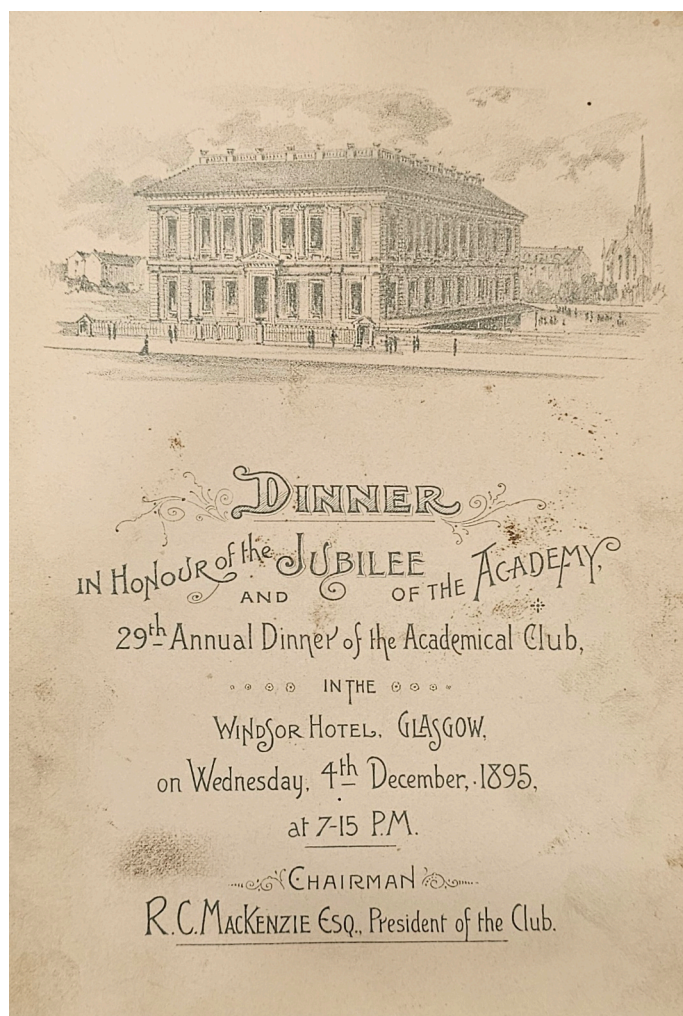 DINNER
IN HONOUR of the JUBILEE OF THE ACADEMY,
AND
29th Annual Dinner of the Academical Club,
IN THE
WINDSOR HOTEL, GLASGOW,
on Wednesday, 4th December, 1895,
at 7-15 P.M.
CHAIRMAN
R.C. MACKENZIE ESQ., President of the Club.